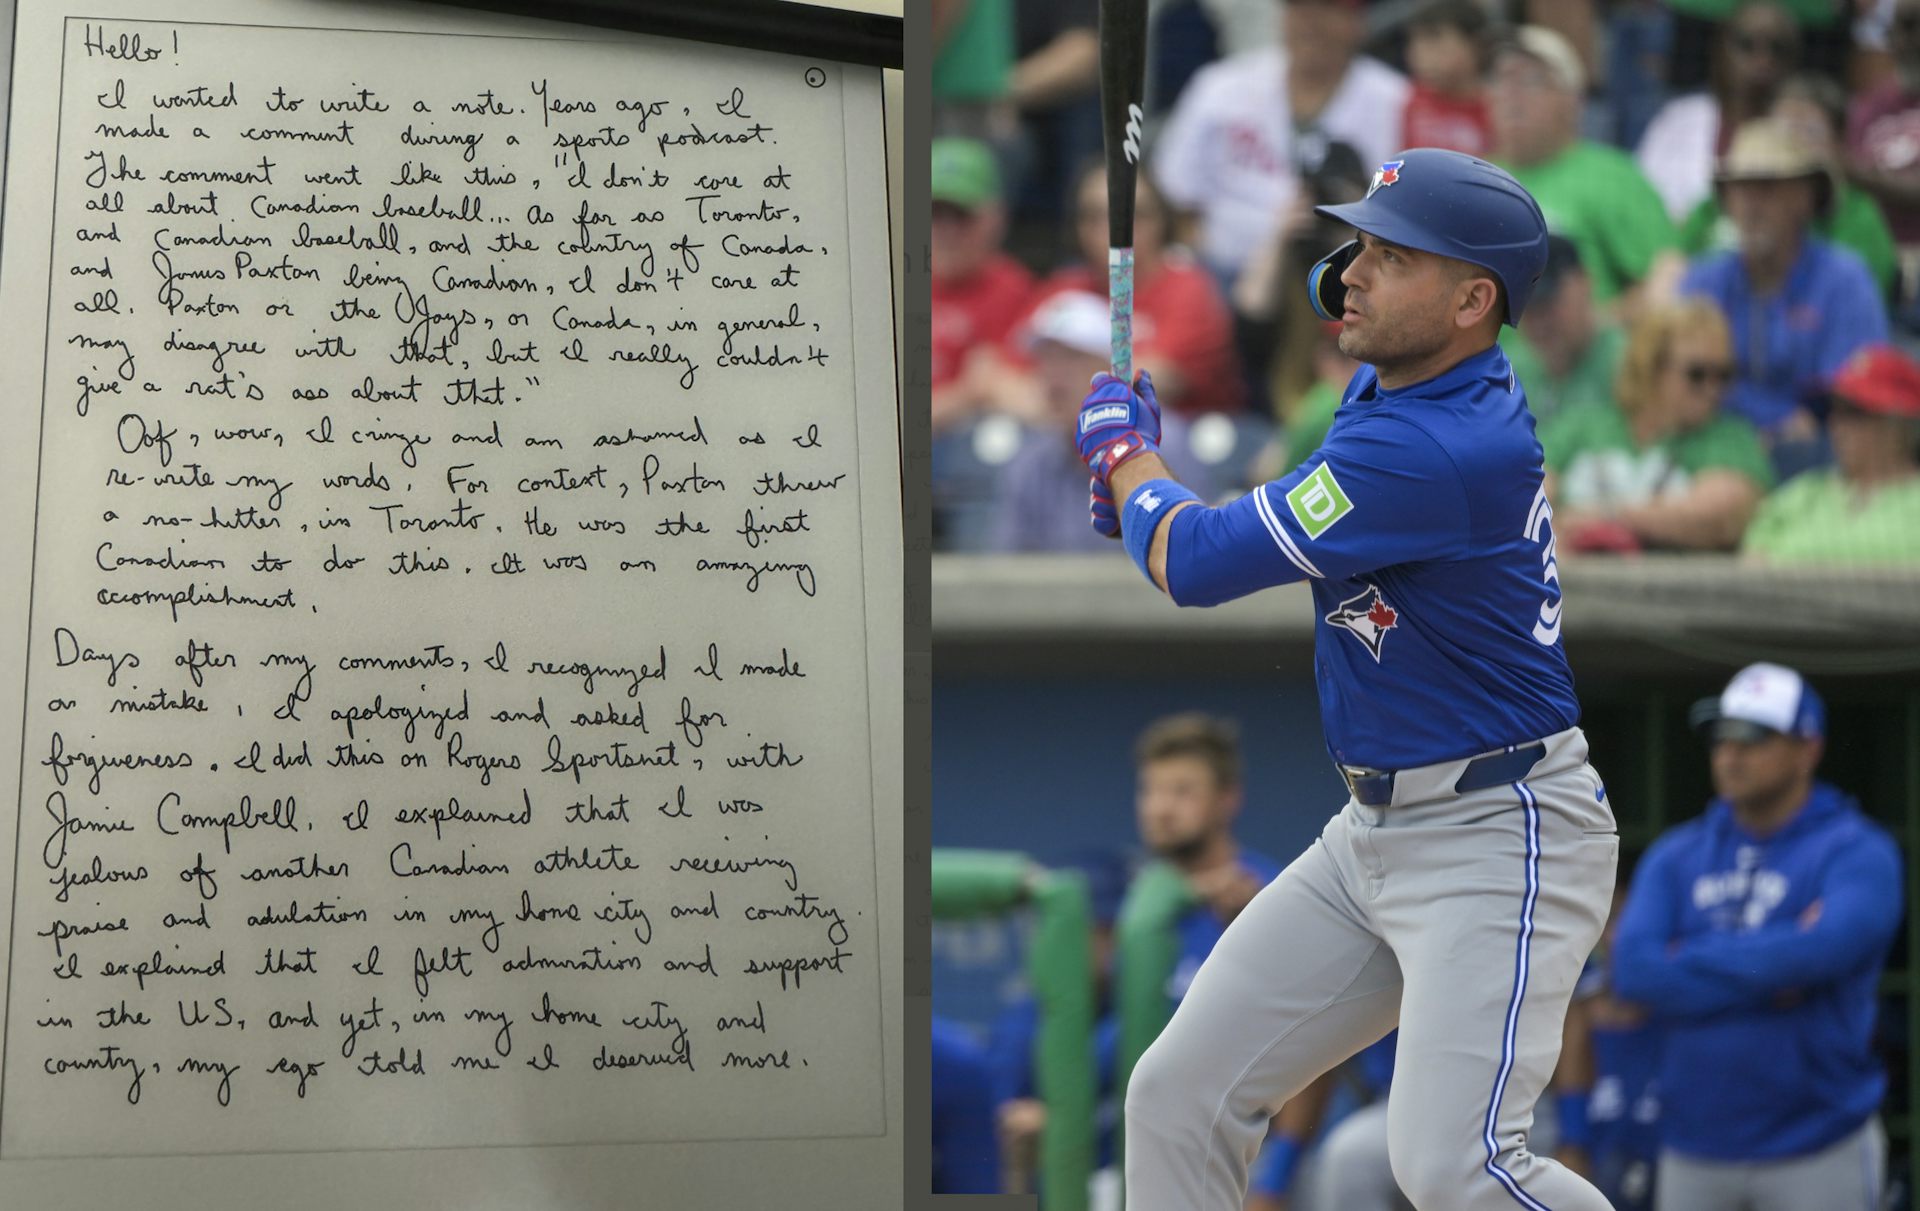 Hello!
I wanted to write a note. Years ago, I
made a comment during a sports podcast.
The comment went like this, "I don't care at
all about Canadian baseball... As far as Toronto,
and Canadian baseball, and the country of Canada,
and James Paxton being Canadian, I don't care at
all. Paxton or the Jays, or Canada, in general,
may disagree with that, but I really couldn't
give a rat's ass about that."
Oof, wow, I cringe and am ashamed as I
re-write my words. For context, Paxton threw
a no-hitter, in Toronto. He was the first
Canadian to do this. It was an amazing
accomplishment.
Days after my comments, I recognized I made
a mistake, I apologized and asked for
forgiveness. I did this on Rogers Sportsnet, with
Jamie Campbell. I explained that I was
jealous of another Canadian athlete receiving
praise and adulation in my home city and country.
I explained that I felt admiration and support
in the U.S, and yet, in my home city and
country, my ego told me I deserved more.
Franklin
TD
3